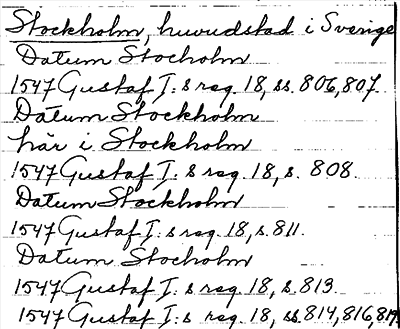 Stockholm, huvudstad i Sverige
Datum Stocholm
1547 Gustaf I:s reg. 18, ss. 806, 807.
Datum Stockholm
här i Stockholm
1547 Gustaf I:s reg. 18, s. 808.
Datum Stockholm
1547 Gustaf I:s reg. 18, s. 811.
Datum Stocholm
1547 Gustaf I:s reg. 18, s. 813.
1547 Gustaf I:s reg. 18, ss. 814, 816, 817